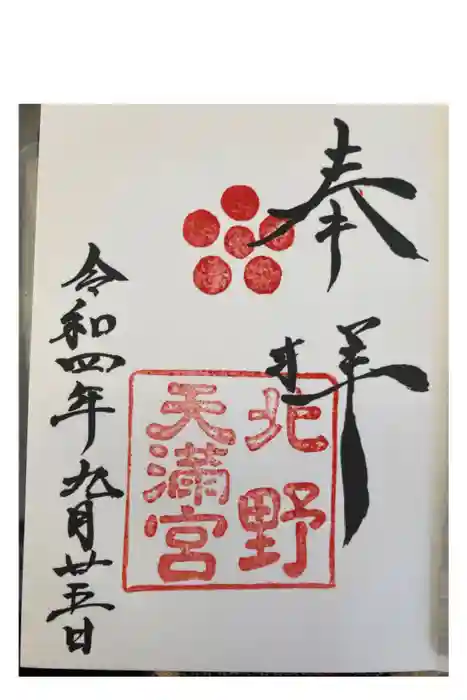 奉拝
北野
天満宮
令和四年九月廿五日